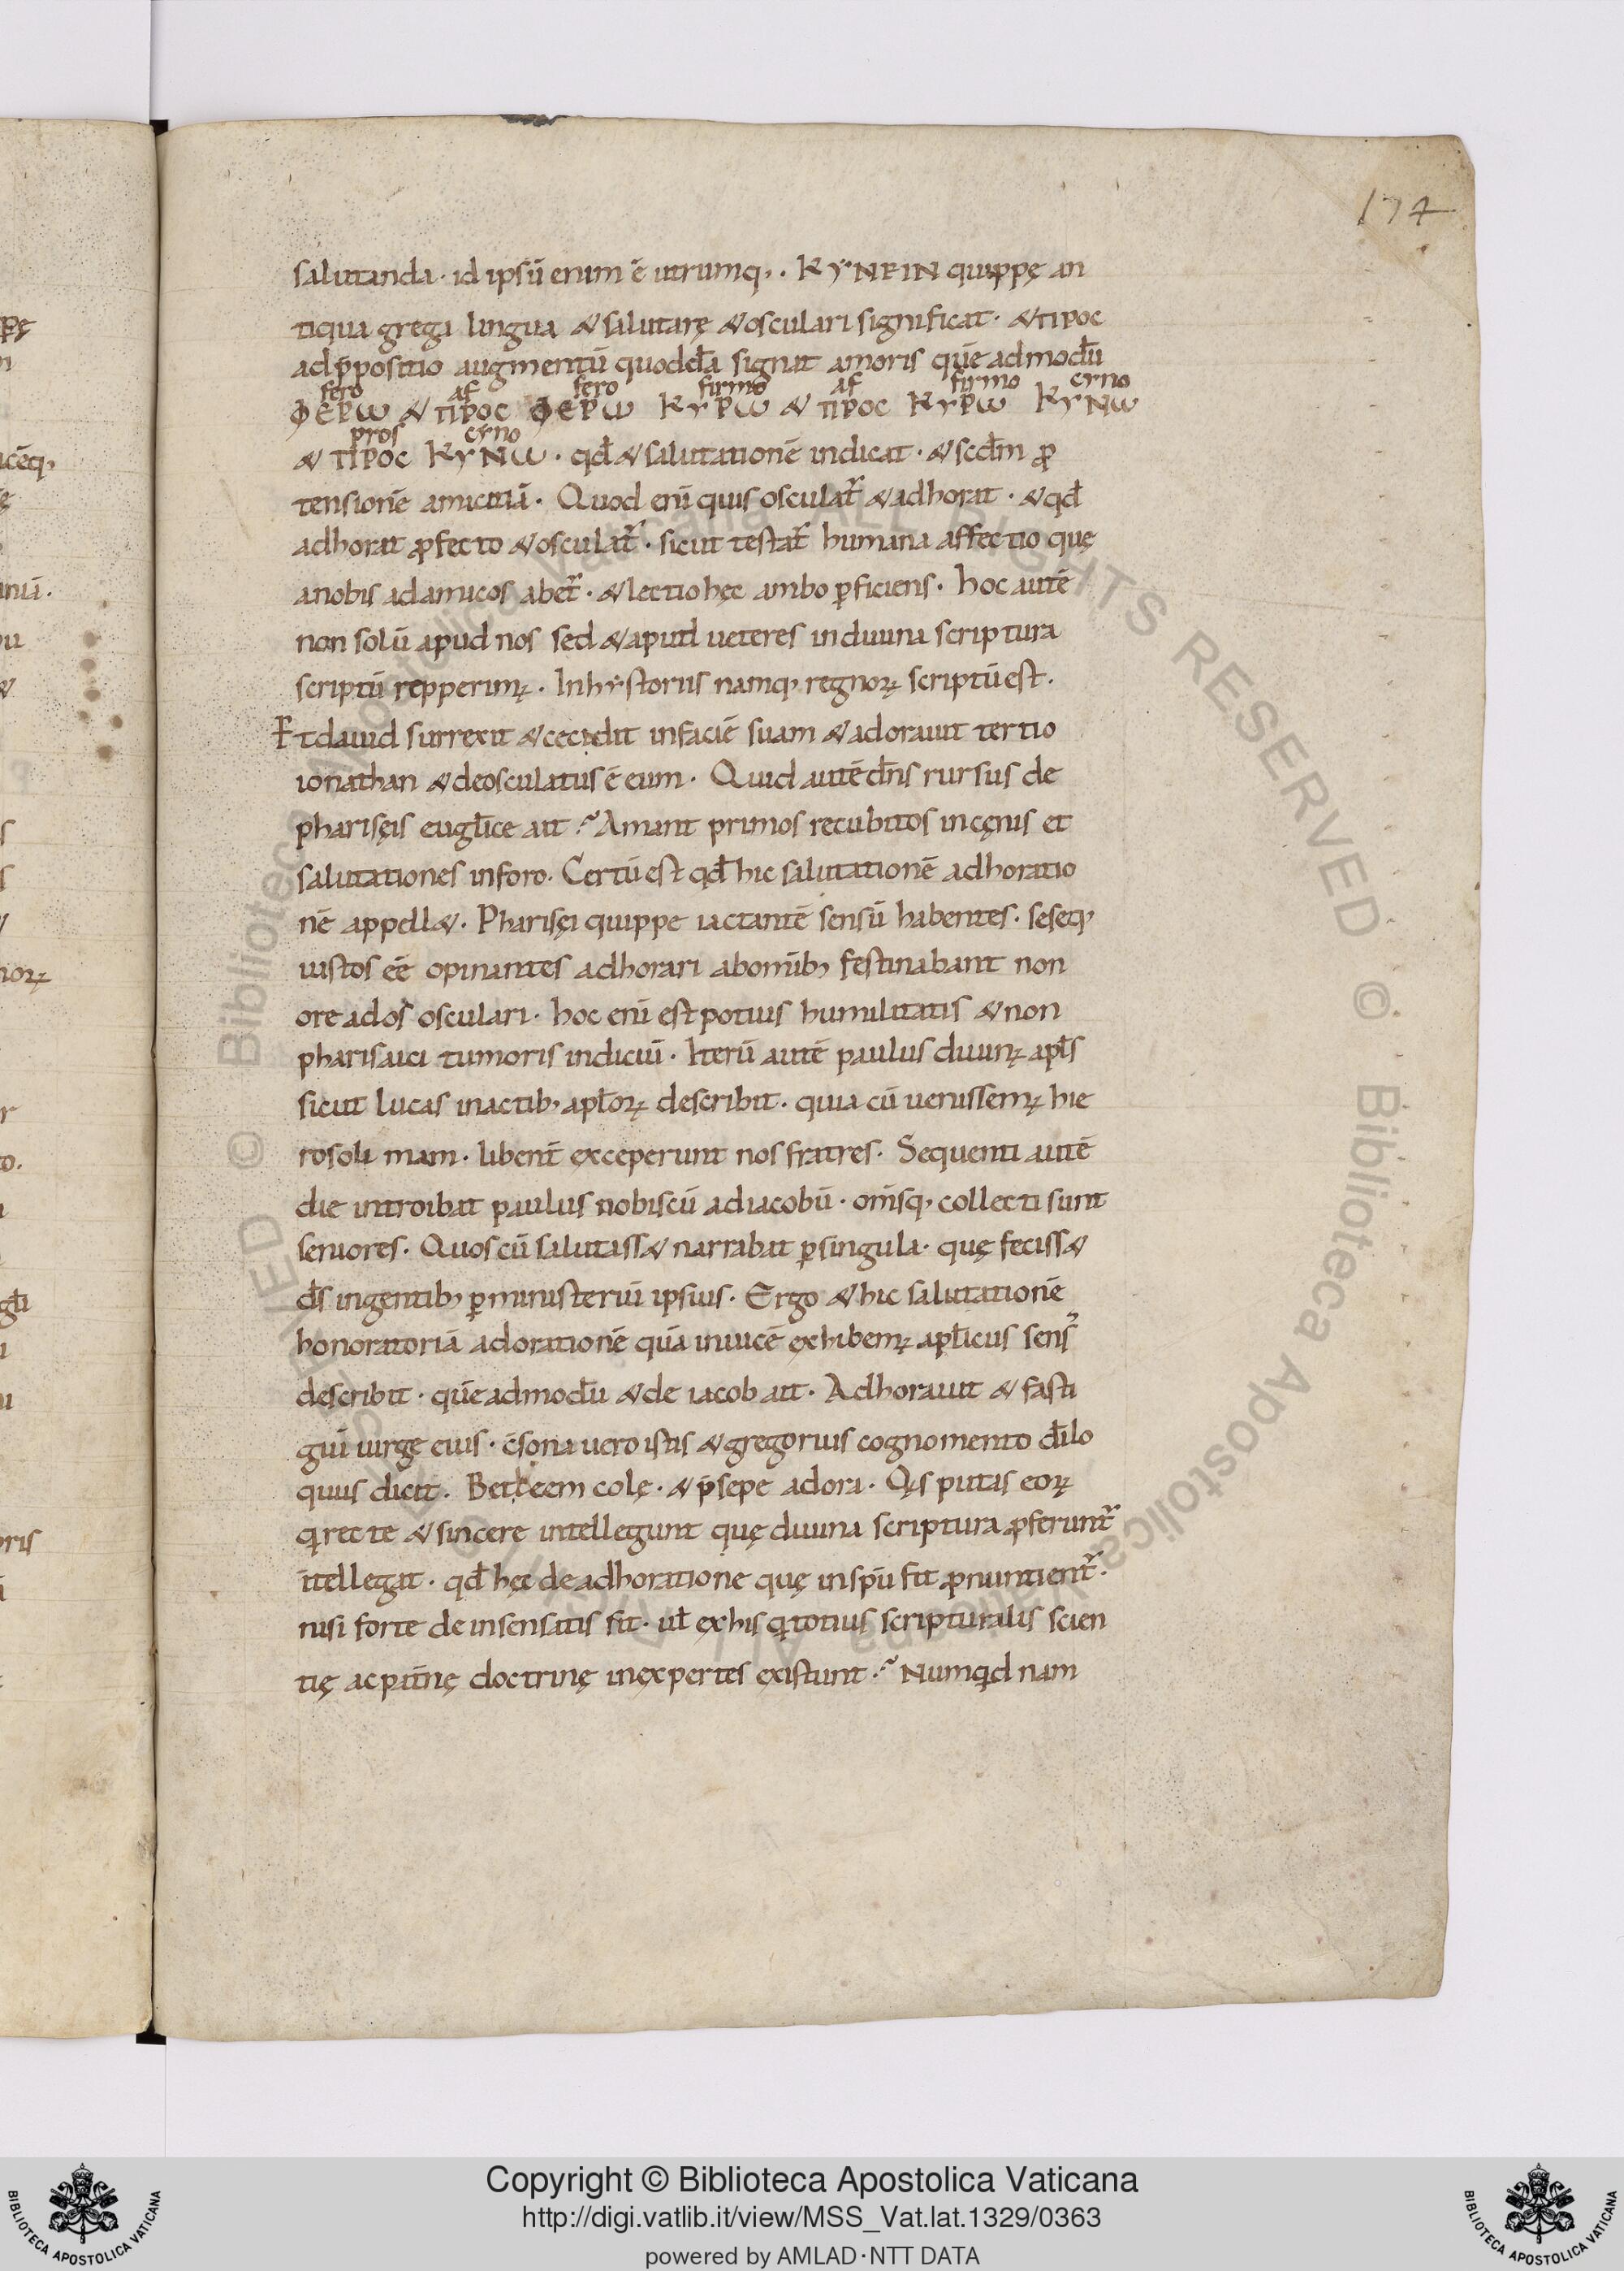 174
salutanda · id ipsū enim ē utrumq; · KYNEIN quippę an
tiqua grega lingua & salutarę & osculari significat · & ΠΡΟC
ad p̄positio augmentū quoddā signat amoris quēadmodū
fero af fero firmo af firmo cyrno
ΦΕΡω & ΠΡΟC ΦΕΡω KYPω & ΠΡΟC KYPω KYNω
pros cyno
& ΠΡΟC KYNω · qđ & salutationē indicat · & scđm ꝓ
tensionē amicitiā · Quod eni quis osculat̃ & adhorat · & qđ
adhorat ꝓfecto & osculat̃ · sicut testat̃ humana affectio quę
anobis adamicos abet̃ · & lectio hęc ambo ꝑficiens · hoc autē
non solū apud nos sed & apud ueteres indiuina scriptura
scriptū repperimꝰ · Inhystoriis namq; regnoꝝ scriptū est ·
Et dauid surrexit & cecidit infaciē suam & adorauit tertio
ionathan & deosculatus ē eum · Quid autē dn̄s rursus de
pharisęis eugl̄ice ait : Amant primos recubitos incęnis et
salutationes inforo · Certū est qđ hic salutationē adhoratio
nē appell& · Pharisęi quippe iactantē sensū habentes · seseq;
iustos eē opinantes adhorari abomib; festinabant non
ore ad os osculari · hoc eni est potius humilitatis & non
pharisaici tumoris indiciū · Iterū autē paulus diuinꝰ apl̄s
sicut lucas inactib; apl̄oꝝ describit · quia cū uenissemꝰ hie
rosoli mam · libent̄ exceperunt nos fratres · Sequenti autē
die introibat paulus nobiscū ad iacobū · om̄sq; collecti sunt
seniores · Quos cū salutass& narrabat ꝑsingula · quę feciss&
dś ingentib; ꝑministeriū ipsius · Ergo & hic salutationē
honoratoriā adorationē quā inuicē exhibemꝰ apl̄icus sensꝰ
describit · quēadmodū & de iacob ait · Adhorauit & fasti
giū uirgę eius · c̄sona uero istis & gregorius cognomento dīlo
quus dicit · Bethleem colę · & p̄sepe adora · Qis putas eoꝝ
qi recte & sincere intellegunt quę diuina scriptura ꝓferunt̃
ītellegat · qđ hęc de adhoratione quę inspū fit ꝓnuntient̃ ·
nisi forte de insensatis fit · ul̄ exhis qi totius scripturalis scien
tię ac pat̄nę doctrinę inexpertes existunt : Numqid nam
Copyright © Biblioteca Apostolica Vaticana
http://digi.vatlib.it/view/MSS_Vat.lat.1329/0363
powered by AMLAD·NTT DATA